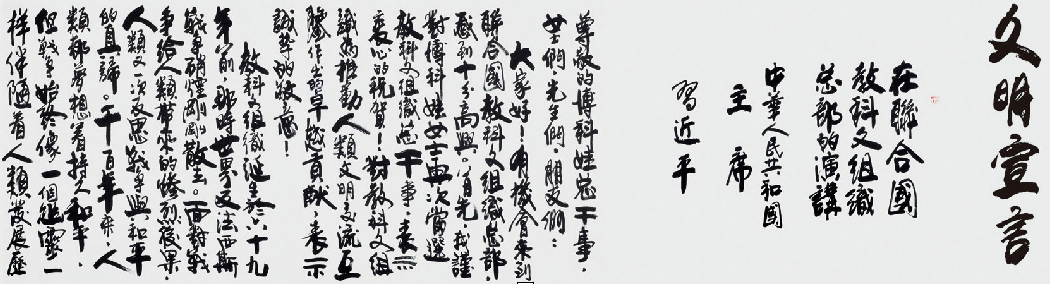 文明宣言
在聯合國
教科文組織
总部的演講
中華人民共和國
主席
習近平
尊敬的博科娃总干事,
女士們,先生們,朋友們:
大家好!有機會來到
聯合國教科文組織总部,
感到十分高興。首先,我謹
對博科娃女士再次當選
教科文組織总干事,表示
衷心的祝賀!對教科文組
織為推動人類文明交流互
鑒作出的卓越貢獻,表示
誠摯的敬意!
教科文組織誕生於六十九
年前,那時世界反法西斯
戰爭硝煙剛剛散去。面對戰
爭給人類帶來的慘烈後果,
人類又一次反思戰爭與和平
的真諦。千百年來,人
類都夢想着持久和平,
但戰爭始終像一個幽靈一
樣伴隨着人類發展歷